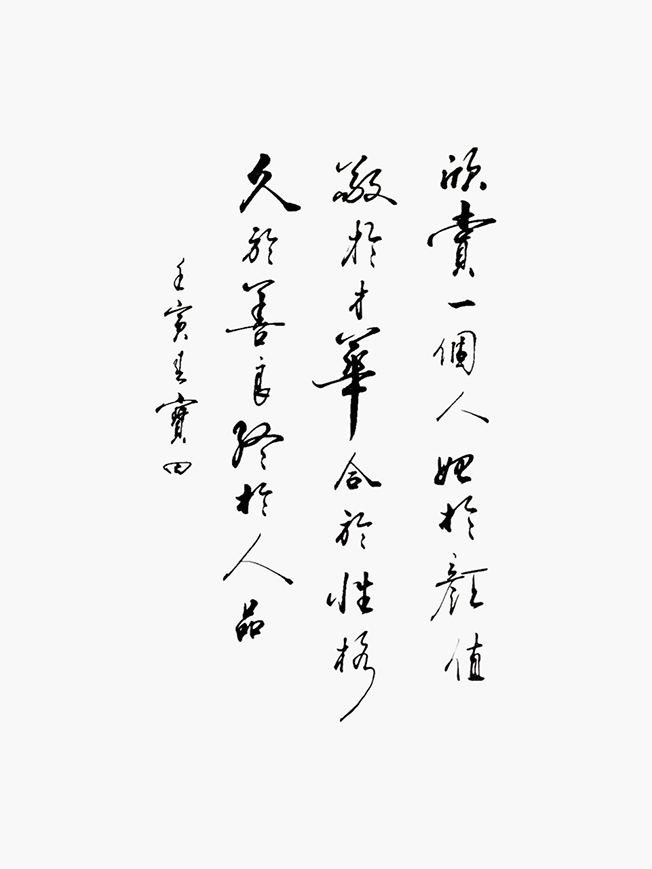 欣賞一個人始於顏值
敬於才華合於性格
久於善良終於人品
壬寅春寶田